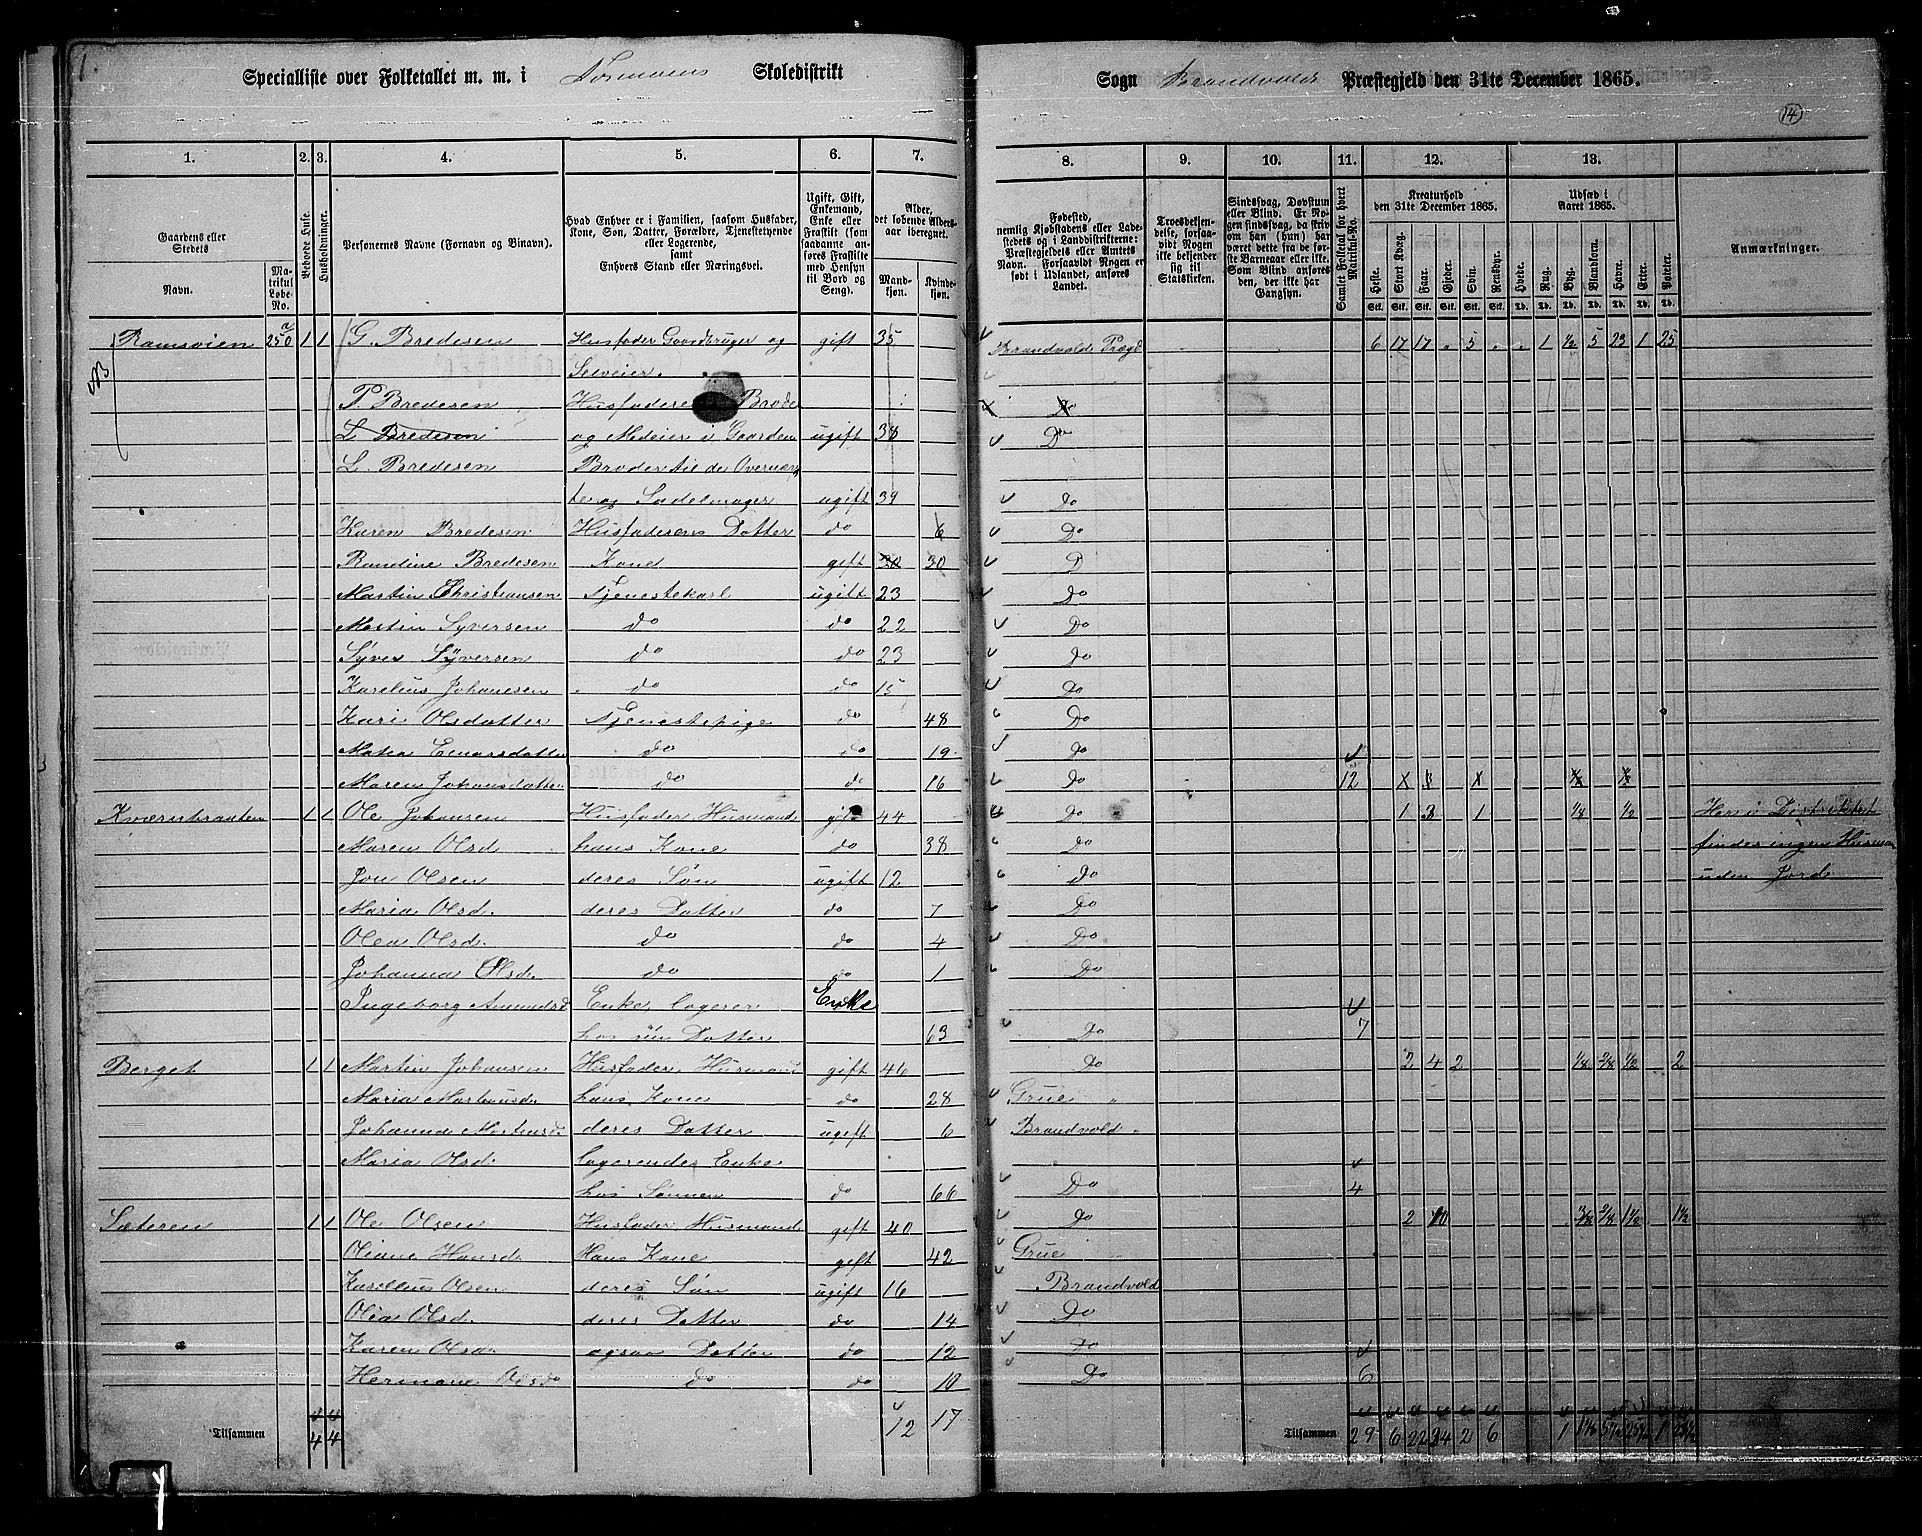 Specialliste over Folketallet m. m. i Normoens Skoledistrikt Sogn Brandvolds Præstegjeld den 31te December 1865.
14
1. 2. 3. 4. 5. 6. 7. 8. 9. 10. 11. 12. 13.
Gaardens eller Stedets
Navn.
Matrikul Løbe-No.
Beboede Huse.
Husholdninger.
Personernes Navne (Fornavn og Binavn).
Hvad Enhver er i Familien, saasom Husfader, Kone, Søn, Datter, Forældre, Tjenestetyende eller Logerende, samt Enhvers Stand eller Næringsvei.
Ugift, Gift, Enkemand, Enke eller Fraskilt (som saadanne anføres Fraskilte med Hensyn til Bord og Seng).
Alder, det løbende Alders-aar iberegnet.
Mandkjøn. Kvindekjøn.
Fødested, nemlig Kjøbstadens eller Ladestedets og i Landdistrikterne: Præstegjeldets eller Amtets Navn. Forsaavidt Nogen er født i Udlandet, anføres Landet.
Troesbekjendelse, forsaavidt Nogen ikke bekjender sig til Statskirken.
Sindssvag, Døvstum eller Blind. Er Nogen sindssvag, da skrives om han (hun) har været dette fra de første Barneaar eller ikke. Som Blind anføres den, der ikke har Gangsyn.
Samlet Folketal for hvert Matrikul-No.
Kreaturhold den 31te December 1865.
Heste. Stort Kvæg. Faar. Gjeder. Svin. Rensdyr.
Udsæd i Aaret 1865.
Hvede. Rug. Byg. Blandkorn. Havre. Erter. Poteter.
Anmærkninger.
Ramsøien 250 a 1 1 G. Bredesen Husfader Gaardbruger og gift 35 Brandvolds Prægd 6 17 17 " 5 " " 1 1/2 5 23 1 25
Selveier.
P. Bredesen Husfaderens Broder Do
L. Bredesen og Medeier i Gaarden ugift 38 Do
L. Bredesen Broder til de Overnævn
te og Sadelmager ugift 39 Do
Karen Bredesen Husfaderens Datter do 6 Do
Randine Bredesen Kone gift 30 30 D
Martin Christiansen Tjenestekarl ugift 23 Do
Martin Syversen do do 22 Do
Syver Syversen do do 23 Do
Karelius Johanesen do do 15 Do
Kari Olsdatter Tjenestepige do 48 Do
Matea Einarsdatter do do 19 Do
Maren Johansdatter do do 16 Do 12
Kværnbraaten 1 1 Ole Johansen Husfader, Husmand gift 44 Do 1 3 1 1/8 1/2 Her i Distriktet
Maren Olsd hans Kone do 38 Do findes ingen Husmæn
Jon Olsen deres Søn ugift 12 Do uden Jord
Maria Olsd. deres Datter do 7 Do
Olea Olsd. do do 4 Do
Johanna Olsd. do do 1 Do
Ingeborg Amundsd Enke, logerer Enke
hos sin Datter 63 Do 7
Berget 1 1 Martin Johansen Husfader, Husmand gift 46 Do 2 4 2 1/8 2/8 1/2 2
Maria Martinusd. hans Kone do 28 Grue "
Johanna Martinsd. deres Datter ugift 6 Brandvold "
Maria Olsd. logerendes Enke
hos Sønnen do 66 Do 4
Sæteren 1 1 Ole Olsen Husfader, Husmand gift 40 Do 2 10 3/8 2/8 1 1/2 1 1/2
Oliane Hansd. Hans Kone gift 42 Grue
Karellius Olsen deres Søn ugift 16 Brandvold
Olea Olsd. deres Datter do 14 Do
Karen Olsd. ogsaa Datter do 12 Do
Hermane Olsd. do do 10 Do 6
Tilsammen 4 4 12 17 Tilsammen 29 6 22 34 2 6 1